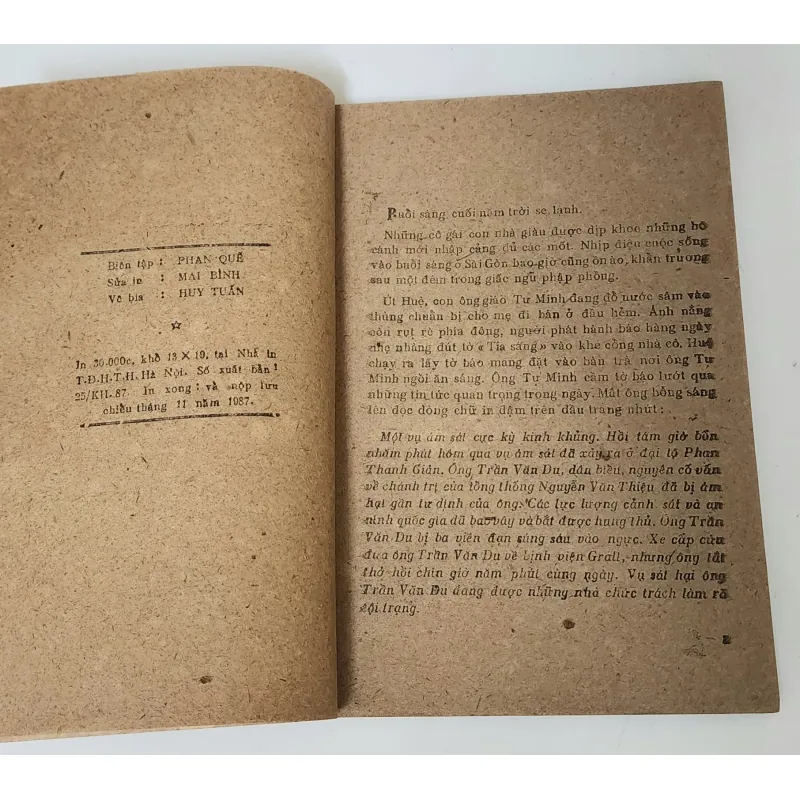 Biên tập : PHAN QUẾ
Sửa in : MAI BÌNH
Vẽ bìa : HUY TUẤN
In 30.000c, khổ 13 × 19, tại Nhà in
T.Đ.H.T.H. Hà Nội. Số xuất bản:
25/KH.87. In xong: và nộp lưu
chiểu tháng 11 năm 1987.
Buổi sáng cuối năm trời se lạnh.
Những cô gái con nhà giàu được dịp khoe những bộ
cánh mới nhập cảng đủ các mốt. Nhịp điệu cuộc sống
vào buổi sáng ở Sài Gòn bao giờ cũng ồn ào, khẩn trương
sau một đêm trong giấc ngủ phập phồng.
Út Huệ, con ông giáo Tư Minh đang đổ nước sâm vào
thùng chuẩn bị cho mẹ đi bán ở đầu hẻm. Ánh nắng
còn rụt rè phía đông, người phát hành báo hàng ngày
nhẹ nhàng đút tờ « Tia sáng » vào khe cổng nhà cô. Huệ
chạy ra lấy tờ báo mang đặt vào bàn trà nơi ông Tư
Minh ngồi ăn sáng. Ông Tư Minh cầm tờ báo lướt qua
những tin tức quan trọng trong ngày. Mắt ông bỗng sáng
lên đọc dòng chữ in đậm trên đầu trang nhứt:
Một vụ ám sát cực kỳ kinh khủng. Hồi tám giờ bốn
nhăm phút hôm qua vụ ám sát đã xảy ra ở đại lộ Phan
Thanh Giản. Ông Trần Văn Du, dân biểu, nguyên cố vấn
về chánh trị của tổng thống Nguyễn Văn Thiệu đã bị ám
hại gần tư dinh của ông. Các lực lượng cảnh sát và an
ninh quốc gia đã bao vây và bắt được hung thủ. Ông Trần
Văn Du bị ba viên đạn súng sáu vào ngực. Xe cấp cứu
đưa ông Trần Văn Du về bịnh viện Grall, nhưng ông tắt
thở hồi chín giờ năm phút cùng ngày. Vụ sát hại ông
Trần Văn Du đang được những nhà chức trách làm rõ
tội trạng.